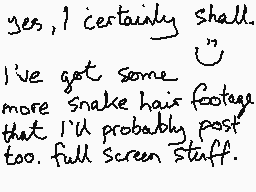 yes, I certainly shall.
I've got some
more snake hair footage
that I'll probably post
too. full screen stuff.